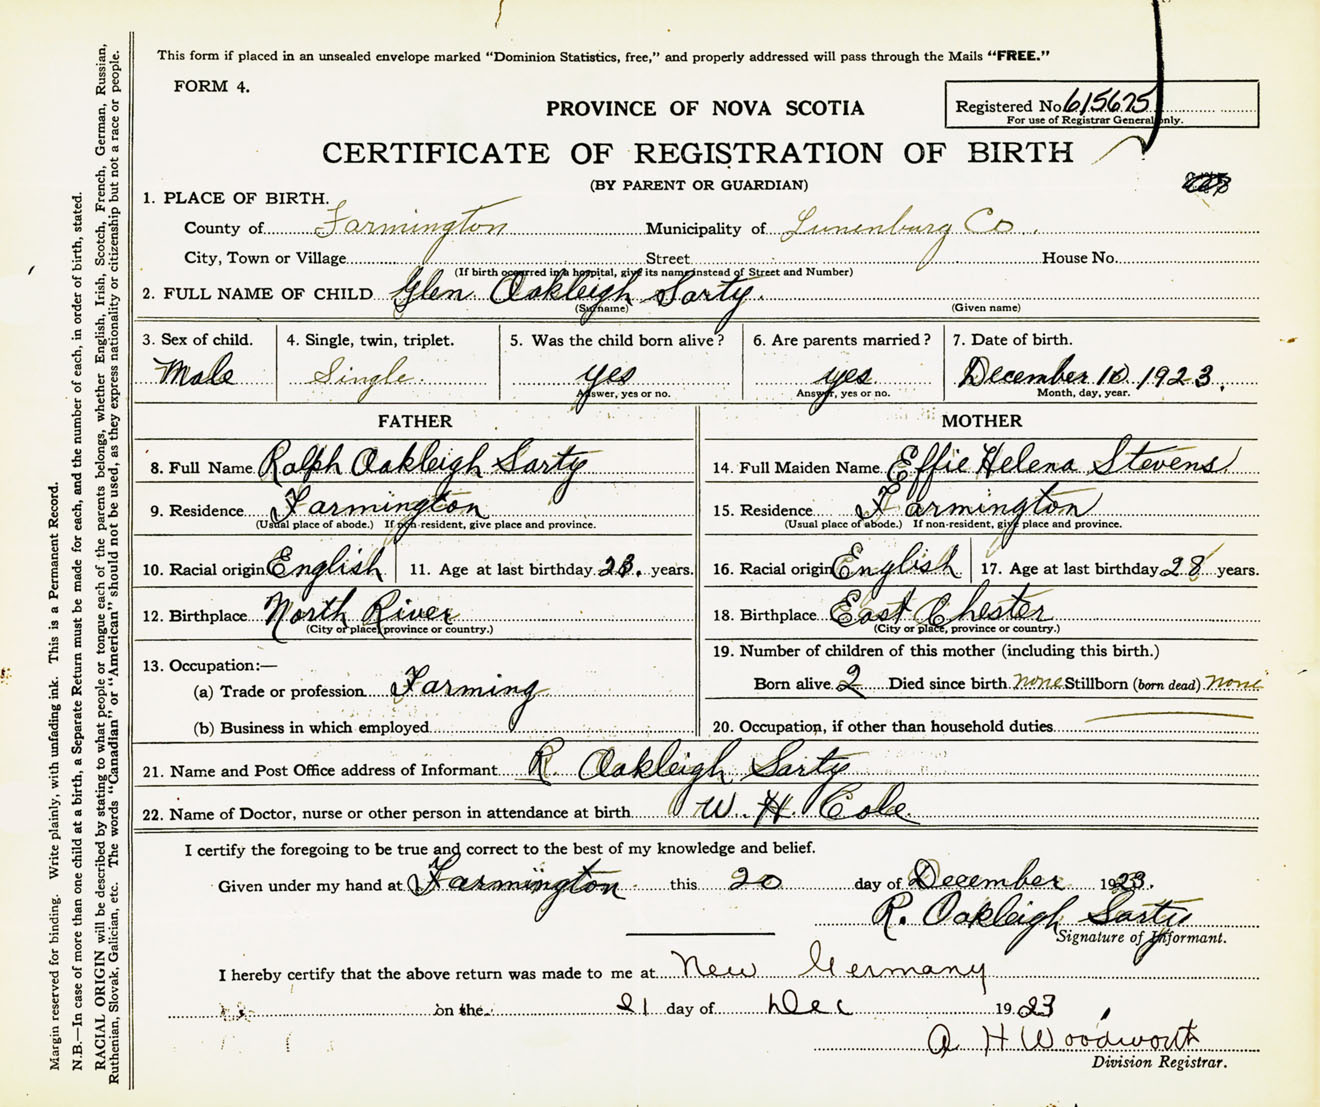 This form if placed in an unsealed envelope marked "Dominion Statistics, free," and properly addressed will pass through the Mails "FREE."
FORM 4.
Registered No. 615675
For use of Registrar General only.
PROVINCE OF NOVA SCOTIA
CERTIFICATE OF REGISTRATION OF BIRTH
(BY PARENT OR GUARDIAN)
1. PLACE OF BIRTH.
County of Farmington Municipality of Lunenburg Co.
City, Town or Village Street House No.
(If birth occurred in a hospital, give its name instead of Street and Number)
2. FULL NAME OF CHILD Glen Oakleigh Sarty.
(Surname) (Given name)
3. Sex of child. 4. Single, twin, triplet. 5. Was the child born alive? 6. Are parents married? 7. Date of birth.
Male Single. yes yes December 10. 1923.
Answer, yes or no. Answer, yes or no. Month, day, year.
FATHER MOTHER
8. Full Name Ralph Oakleigh Sarty 14. Full Maiden Name Effie Helena Stevens
9. Residence Farmington 15. Residence Farmington
(Usual place of abode.) If non-resident, give place and province. (Usual place of abode.) If non-resident, give place and province.
10. Racial origin English 11. Age at last birthday 23. years. 16. Racial origin English 17. Age at last birthday 28 years.
12. Birthplace North River 18. Birthplace East Chester
(City or place, province or country.) (City or place, province or country.)
13. Occupation:— 19. Number of children of this mother (including this birth.)
(a) Trade or profession Farming Born alive 2 Died since birth none Stillborn (born dead) none
(b) Business in which employed 20. Occupation, if other than household duties
21. Name and Post Office address of Informant R Oakleigh Sarty
22. Name of Doctor, nurse or other person in attendance at birth W. H. Cole.
I certify the foregoing to be true and correct to the best of my knowledge and belief.
Given under my hand at Farmington this 20 day of December 1923.
R. Oakleigh Sarty
Signature of Informant.
I hereby certify that the above return was made to me at New Germany
on the 21 day of Dec 1923
A H Woodworth
Division Registrar.
Margin reserved for binding. Write plainly, with unfading ink. This is a Permanent Record.
N.B.—In case of more than one child at a birth, a Separate Return must be made for each, and the number of each, in order of birth, stated.
RACIAL ORIGIN will be described by stating to what people or tongue each of the parents belongs, whether English, Irish, Scotch, French, German, Russian,
Ruthenian, Slovak, Galician, etc. The words "Canadian" or "American" should not be used, as they express nationality or citizenship but not a race or people.